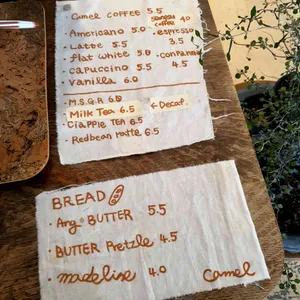 Camel COFFEE 5.5
Seongsu COFFEE 4.0
Americano 5.0
espresso 3.5
Latte 5.5
flat white 5.0
conpanna 4.5
cappuccino 5.5
Vanilla 6.0
M.S.G.R 6.0
Milk Tea 6.5 ← Decaf.
Ciapple TEA 6.5
Redbean Matte 6.5
BREAD
Ang BUTTER 5.5
BUTTER Pretzle 4.5
madeline 4.0
Camel